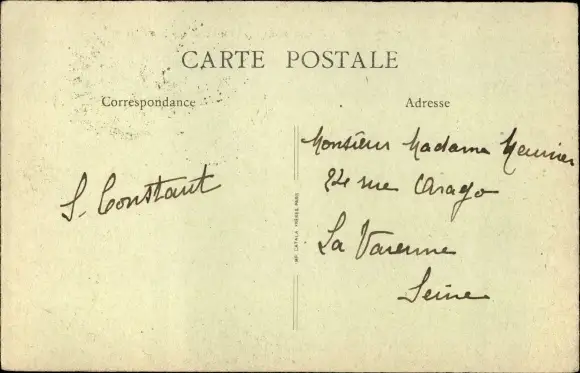 CARTE POSTALE
Correspondance
Adresse
S. Constant
Monsieur Madame Meunier
24 rue Arago
La Varenne
Seine
IMP. CATALA FRÈRES, PARIS